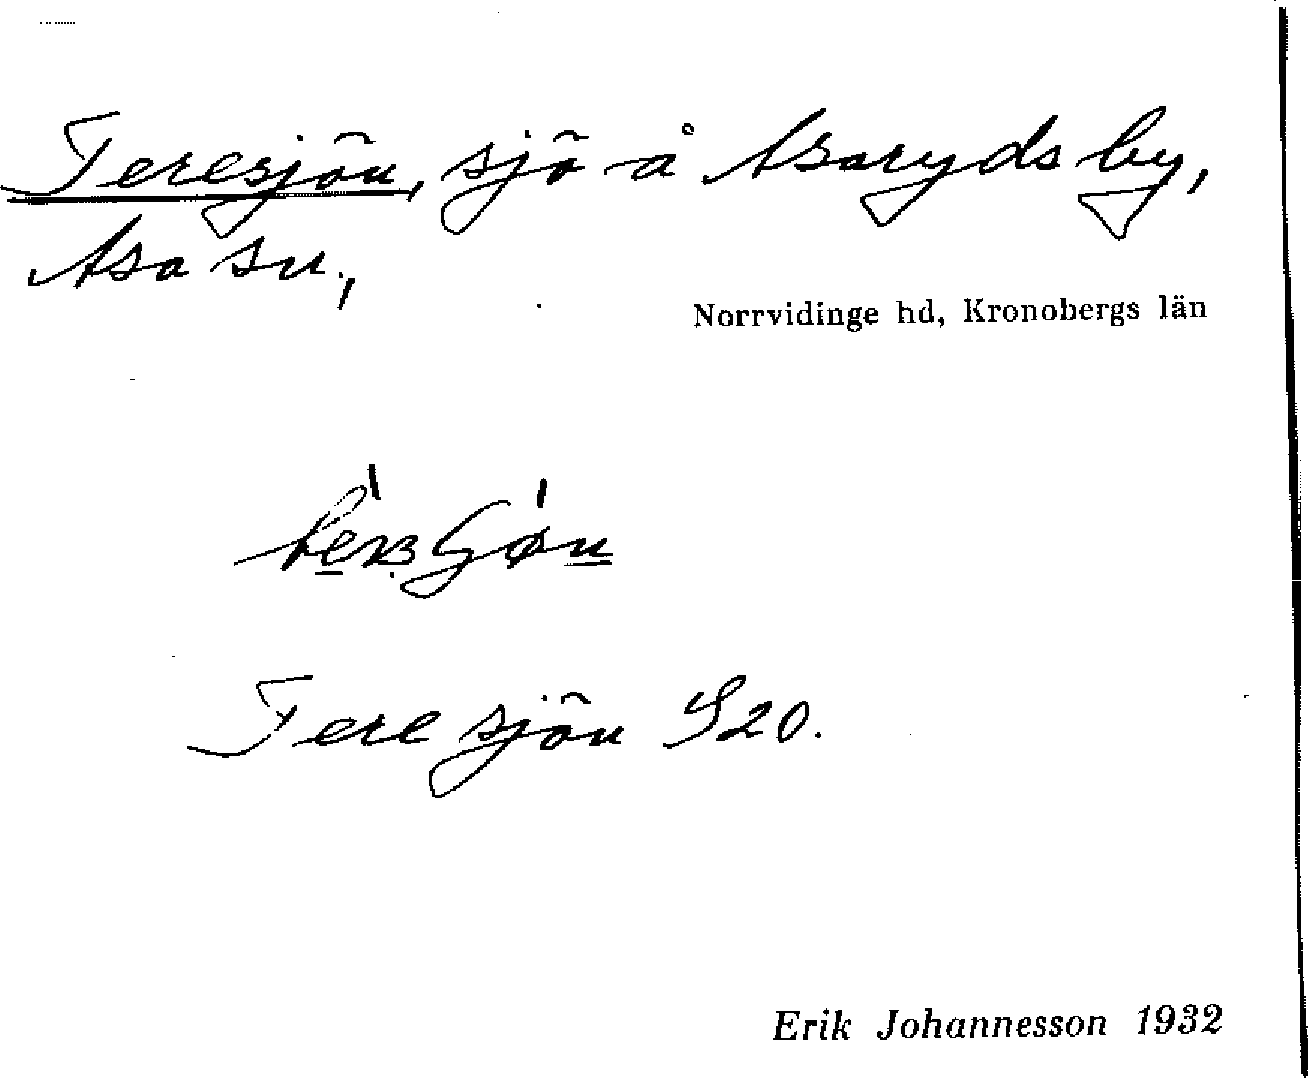 Teresjön, sjö å Asaryds by,
Asa sn.,
Norrvidinge hd, Kronobergs län
Tere sjön S20.
Erik Johannesson 1932